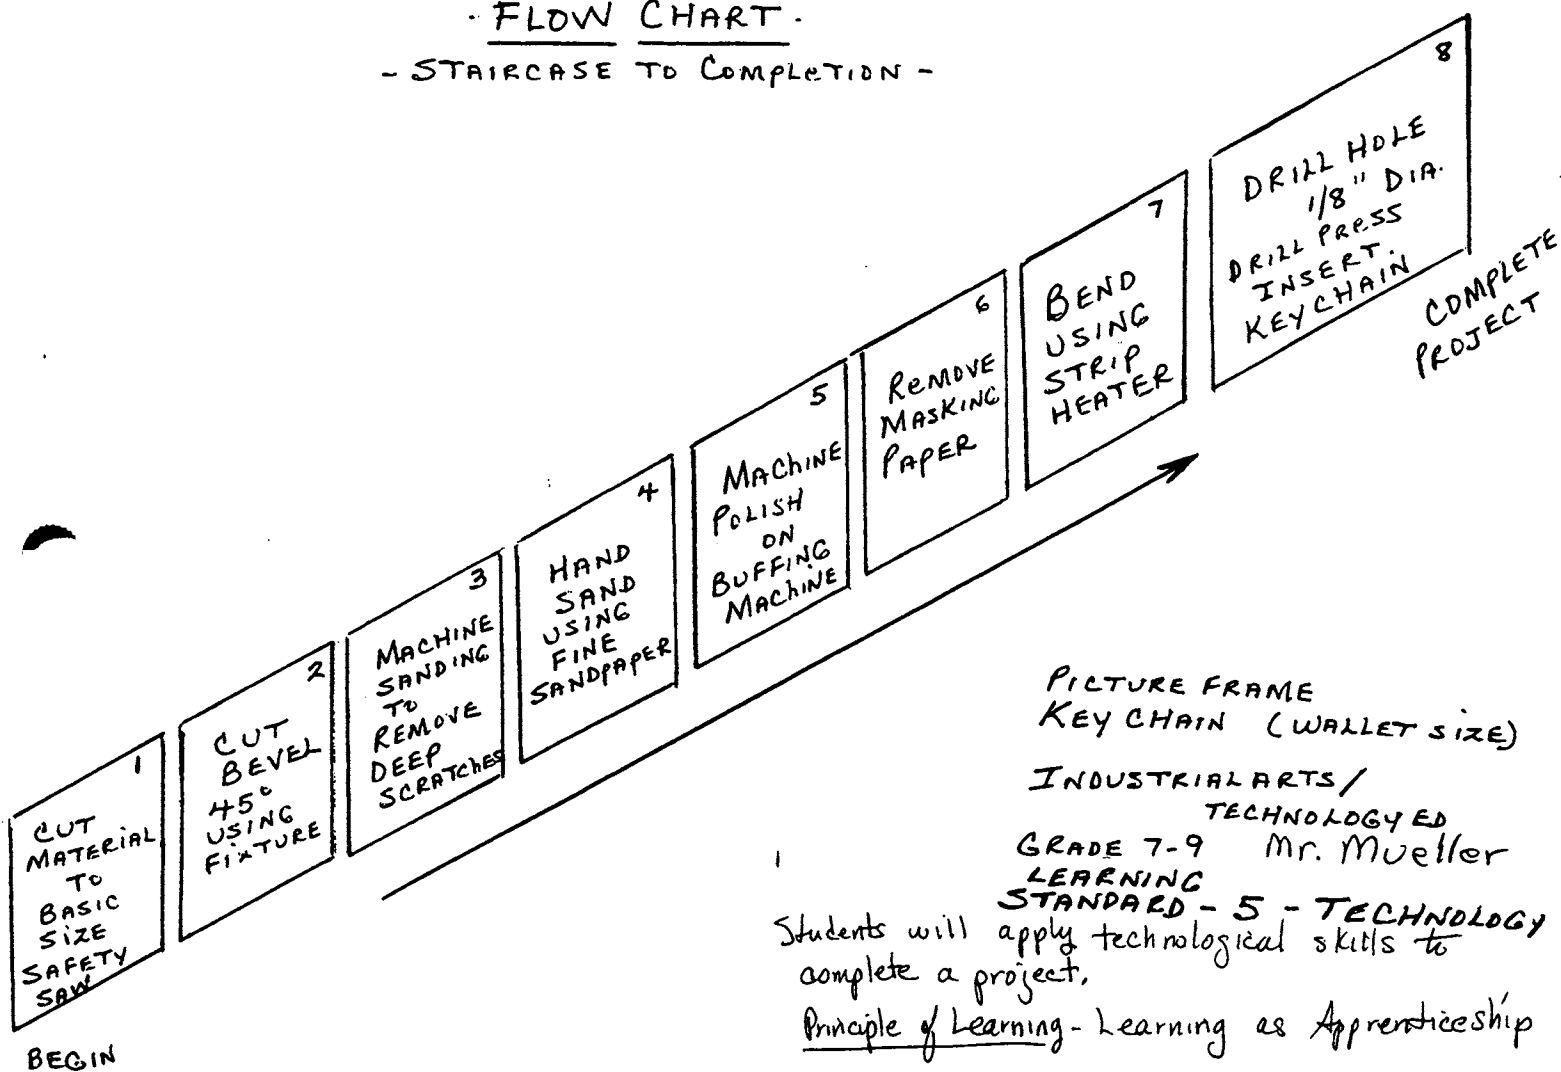 · FLOW CHART ·
- STAIRCASE TO COMPLETION -
1
CUT
MATERIAL
TO
BASIC
SIZE
SAFETY
SAW
BEGIN
2
CUT
BEVEL
45°
USING
FIXTURE
3
MACHINE
SANDING
TO
REMOVE
DEEP
SCRATCHES
4
HAND
SAND
USING
FINE
SANDPAPER
5
MACHINE
POLISH
ON
BUFFING
MACHINE
6
REMOVE
MASKING
PAPER
7
BEND
USING
STRIP
HEATER
8
DRILL HOLE
1/8" DIA.
DRILL PRESS
INSERT.
KEY CHAIN
COMPLETE
PROJECT
PICTURE FRAME
KEY CHAIN (WALLET SIZE)
INDUSTRIAL ARTS/
TECHNOLOGY ED
GRADE 7-9 Mr. Mueller
LEARNING
STANDARD - 5 - TECHNOLOGY
Students will apply technological skills to
complete a project.
Principle of Learning - Learning as Apprenticeship